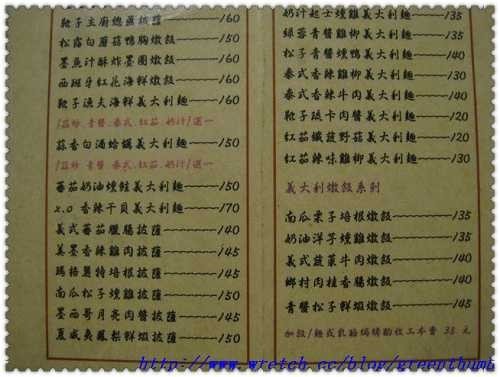 靴子主廚總匯披薩 160
松露白蘑菇鴨胸燉飯 150
墨魚汁酥炸墨團燉飯 160
西班牙紅花海鮮燉飯 160
靴子漁夫海鮮義大利麵 160
/蒜炒.青醬.泰式.紅茄.奶汁/選一
蒜香白酒蛤蠣義大利麵 150
/蒜炒.青醬.泰式.紅茄.奶汁/選一
蕃茄奶油燻鮭義大利麵 150
x.o 香辣干貝義大利麵 170
義式蕃茄臘腸披薩 140
美墨香辣雞肉披薩 145
瑪格麗特培根披薩 145
南瓜松子燻雞披薩 150
墨西哥月亮肉醬披薩 145
夏威夷鳳梨鮮蝦披薩 150
奶汁起士燻雞義大利麵 135
綠蓉青醬雞柳義大利麵 135
松子青醬燻鴨義大利麵 140
泰式香辣雞柳義大利麵 130
泰式香辣牛肉義大利麵 140
靴子玻卡肉醬義大利麵 120
紅茄纖蔬野菇義大利麵 120
紅茄辣味雞柳義大利麵 130
義大利燉飯系列
南瓜栗子培根燉飯 135
奶油洋芋燻雞燉飯 135
義式菠菜牛肉燉飯 140
鄉村肉桂香腸燉飯 140
青醬松子鮮蝦燉飯 145
加飯/麵式乳酪焗烤酌收工本費 35 元
http://www.wretch.cc/blog/greenthumb